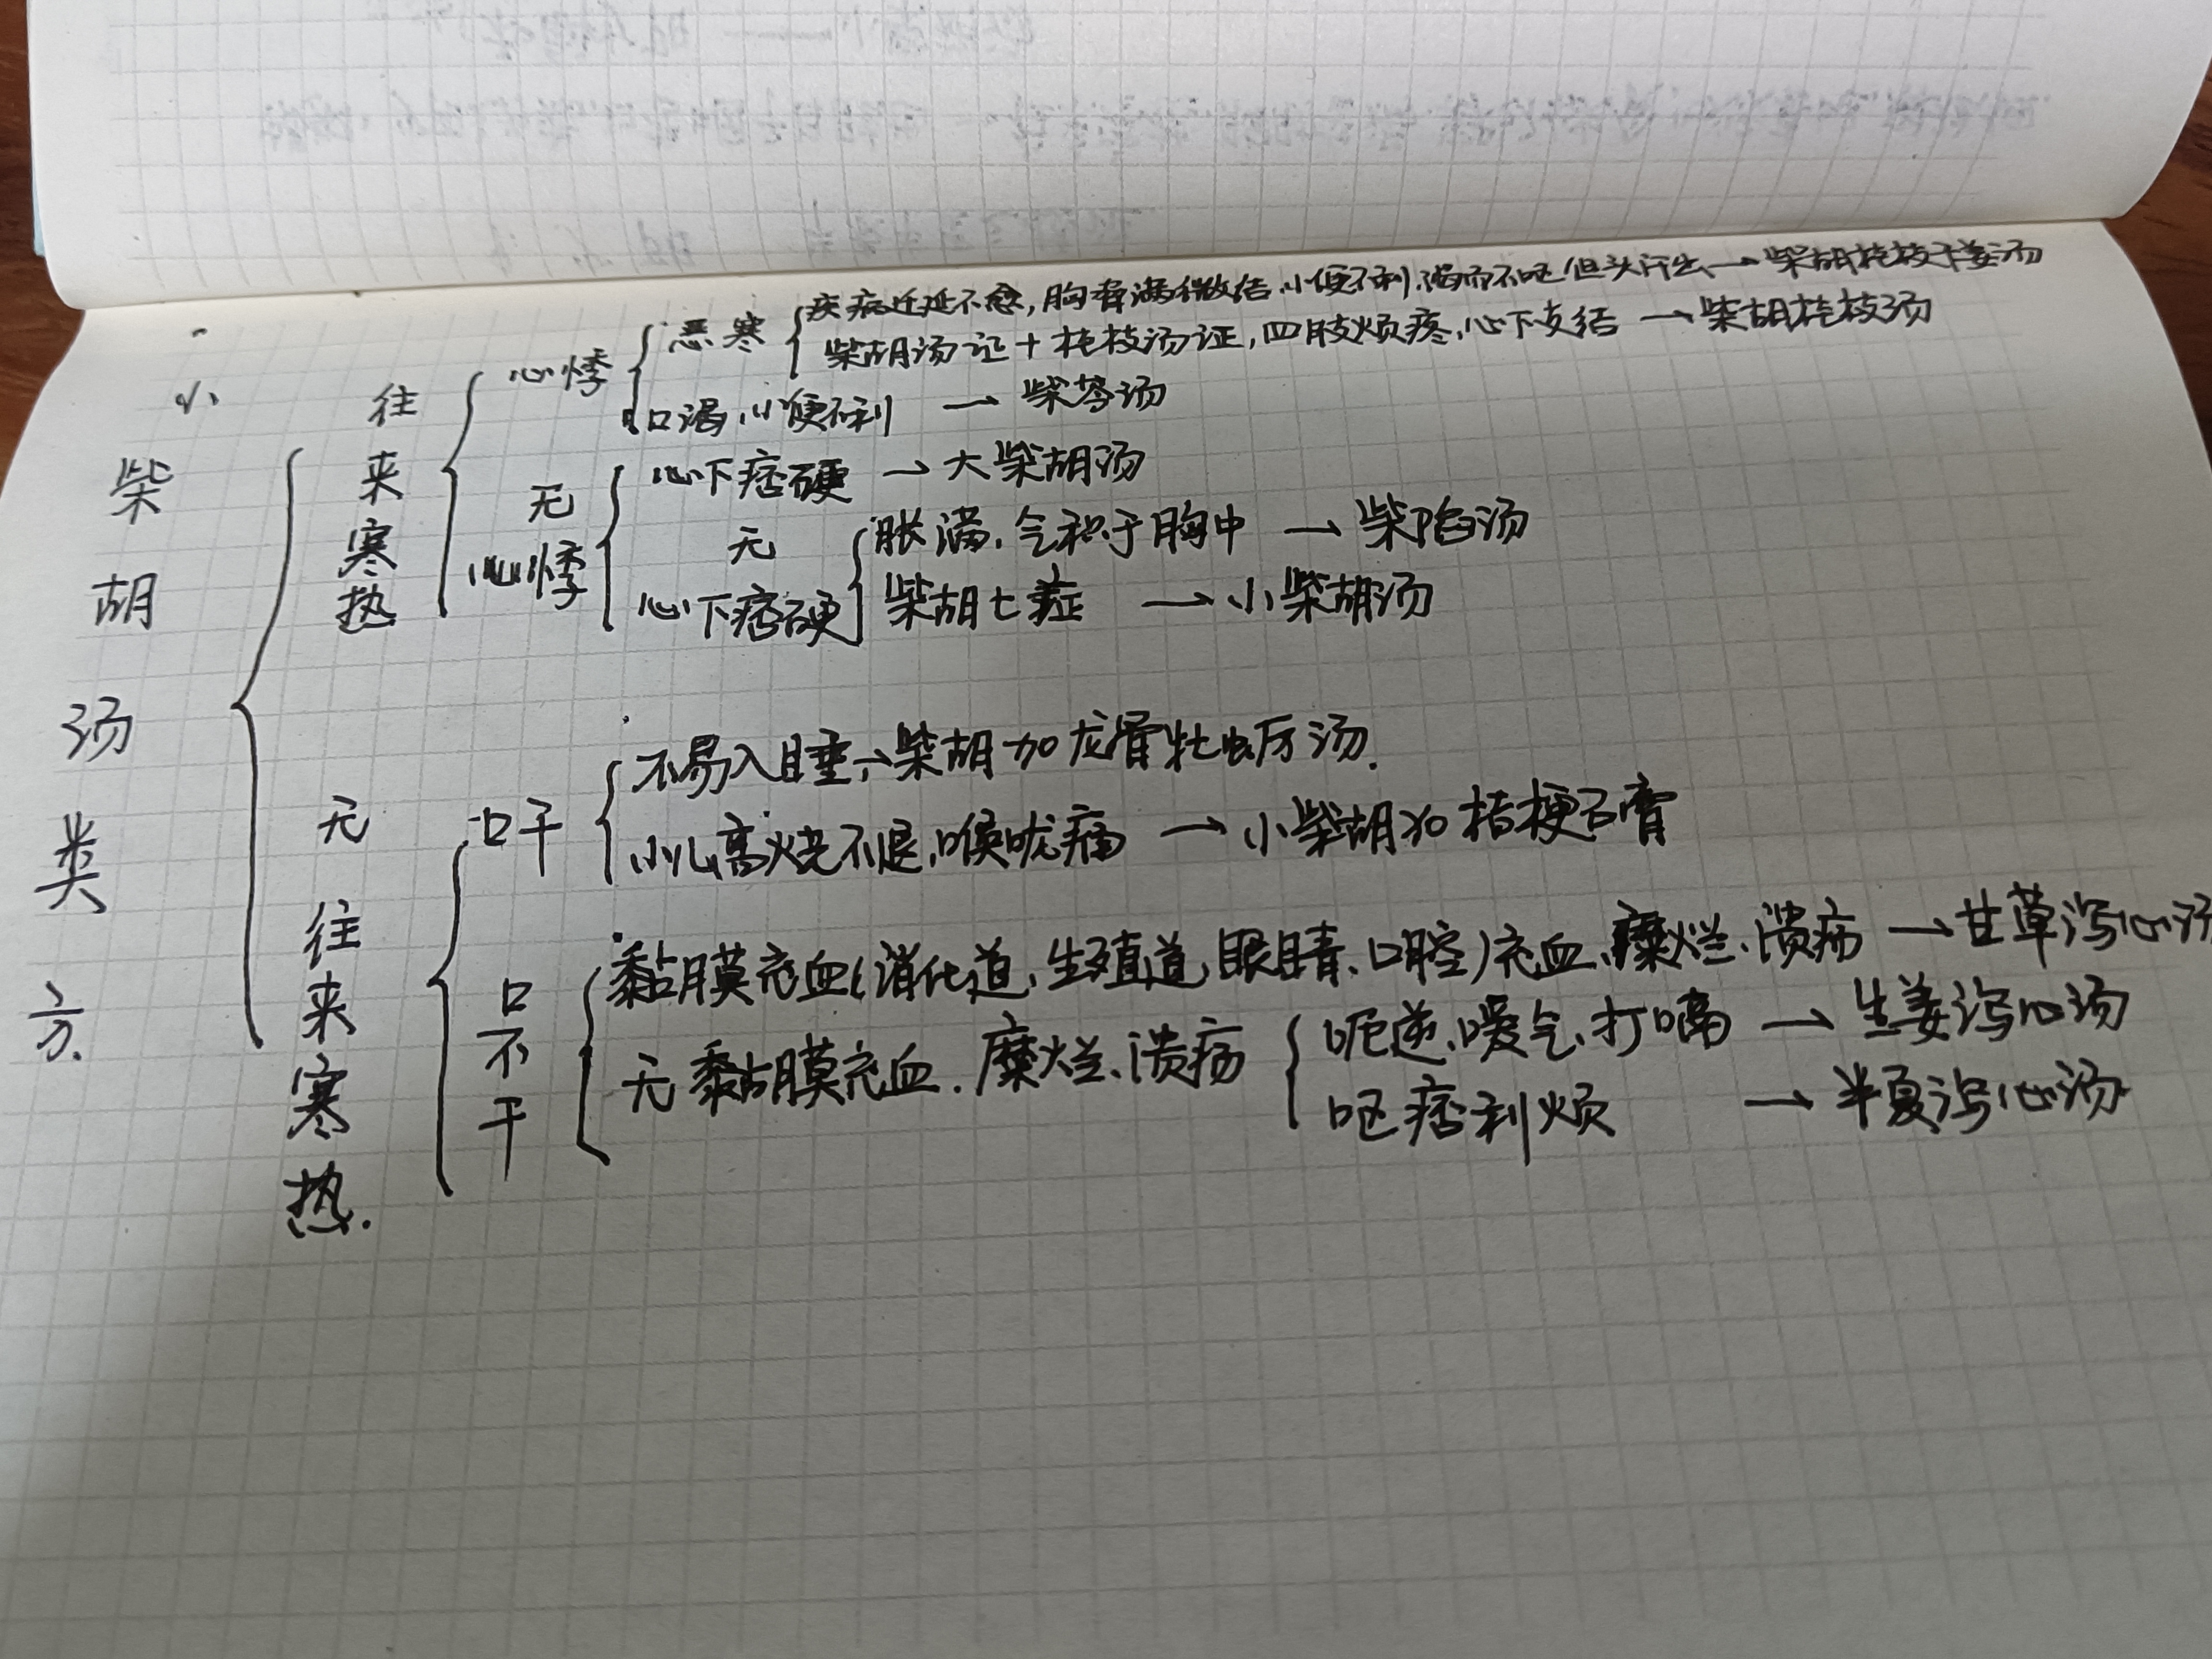 小柴胡汤类方.
往来寒热
心悸
恶寒
疾病迁延不愈,胸胁满微结.小便不利.渴而不呕.但头汗出→柴胡桂枝干姜汤
柴胡汤证+桂枝汤证,四肢烦疼,心下支结→柴胡桂枝汤
口渴,小便不利→柴苓汤
无心悸
心下痞硬→大柴胡汤
无心下痞硬
胀满.气积于胸中→柴陷汤
柴胡七症→小柴胡汤
无往来寒热.
口干
不易入睡→柴胡加龙骨牡蛎汤.
小儿高烧不退,喉咙痛→小柴胡加桔梗石膏
口不干
黏膜充血(消化道,生殖道,眼睛、口腔)充血、糜烂、溃疡→甘草泻心汤
无黏膜充血.糜烂、溃疡
呃逆、嗳气、打嗝→生姜泻心汤
呕痞利烦→半夏泻心汤